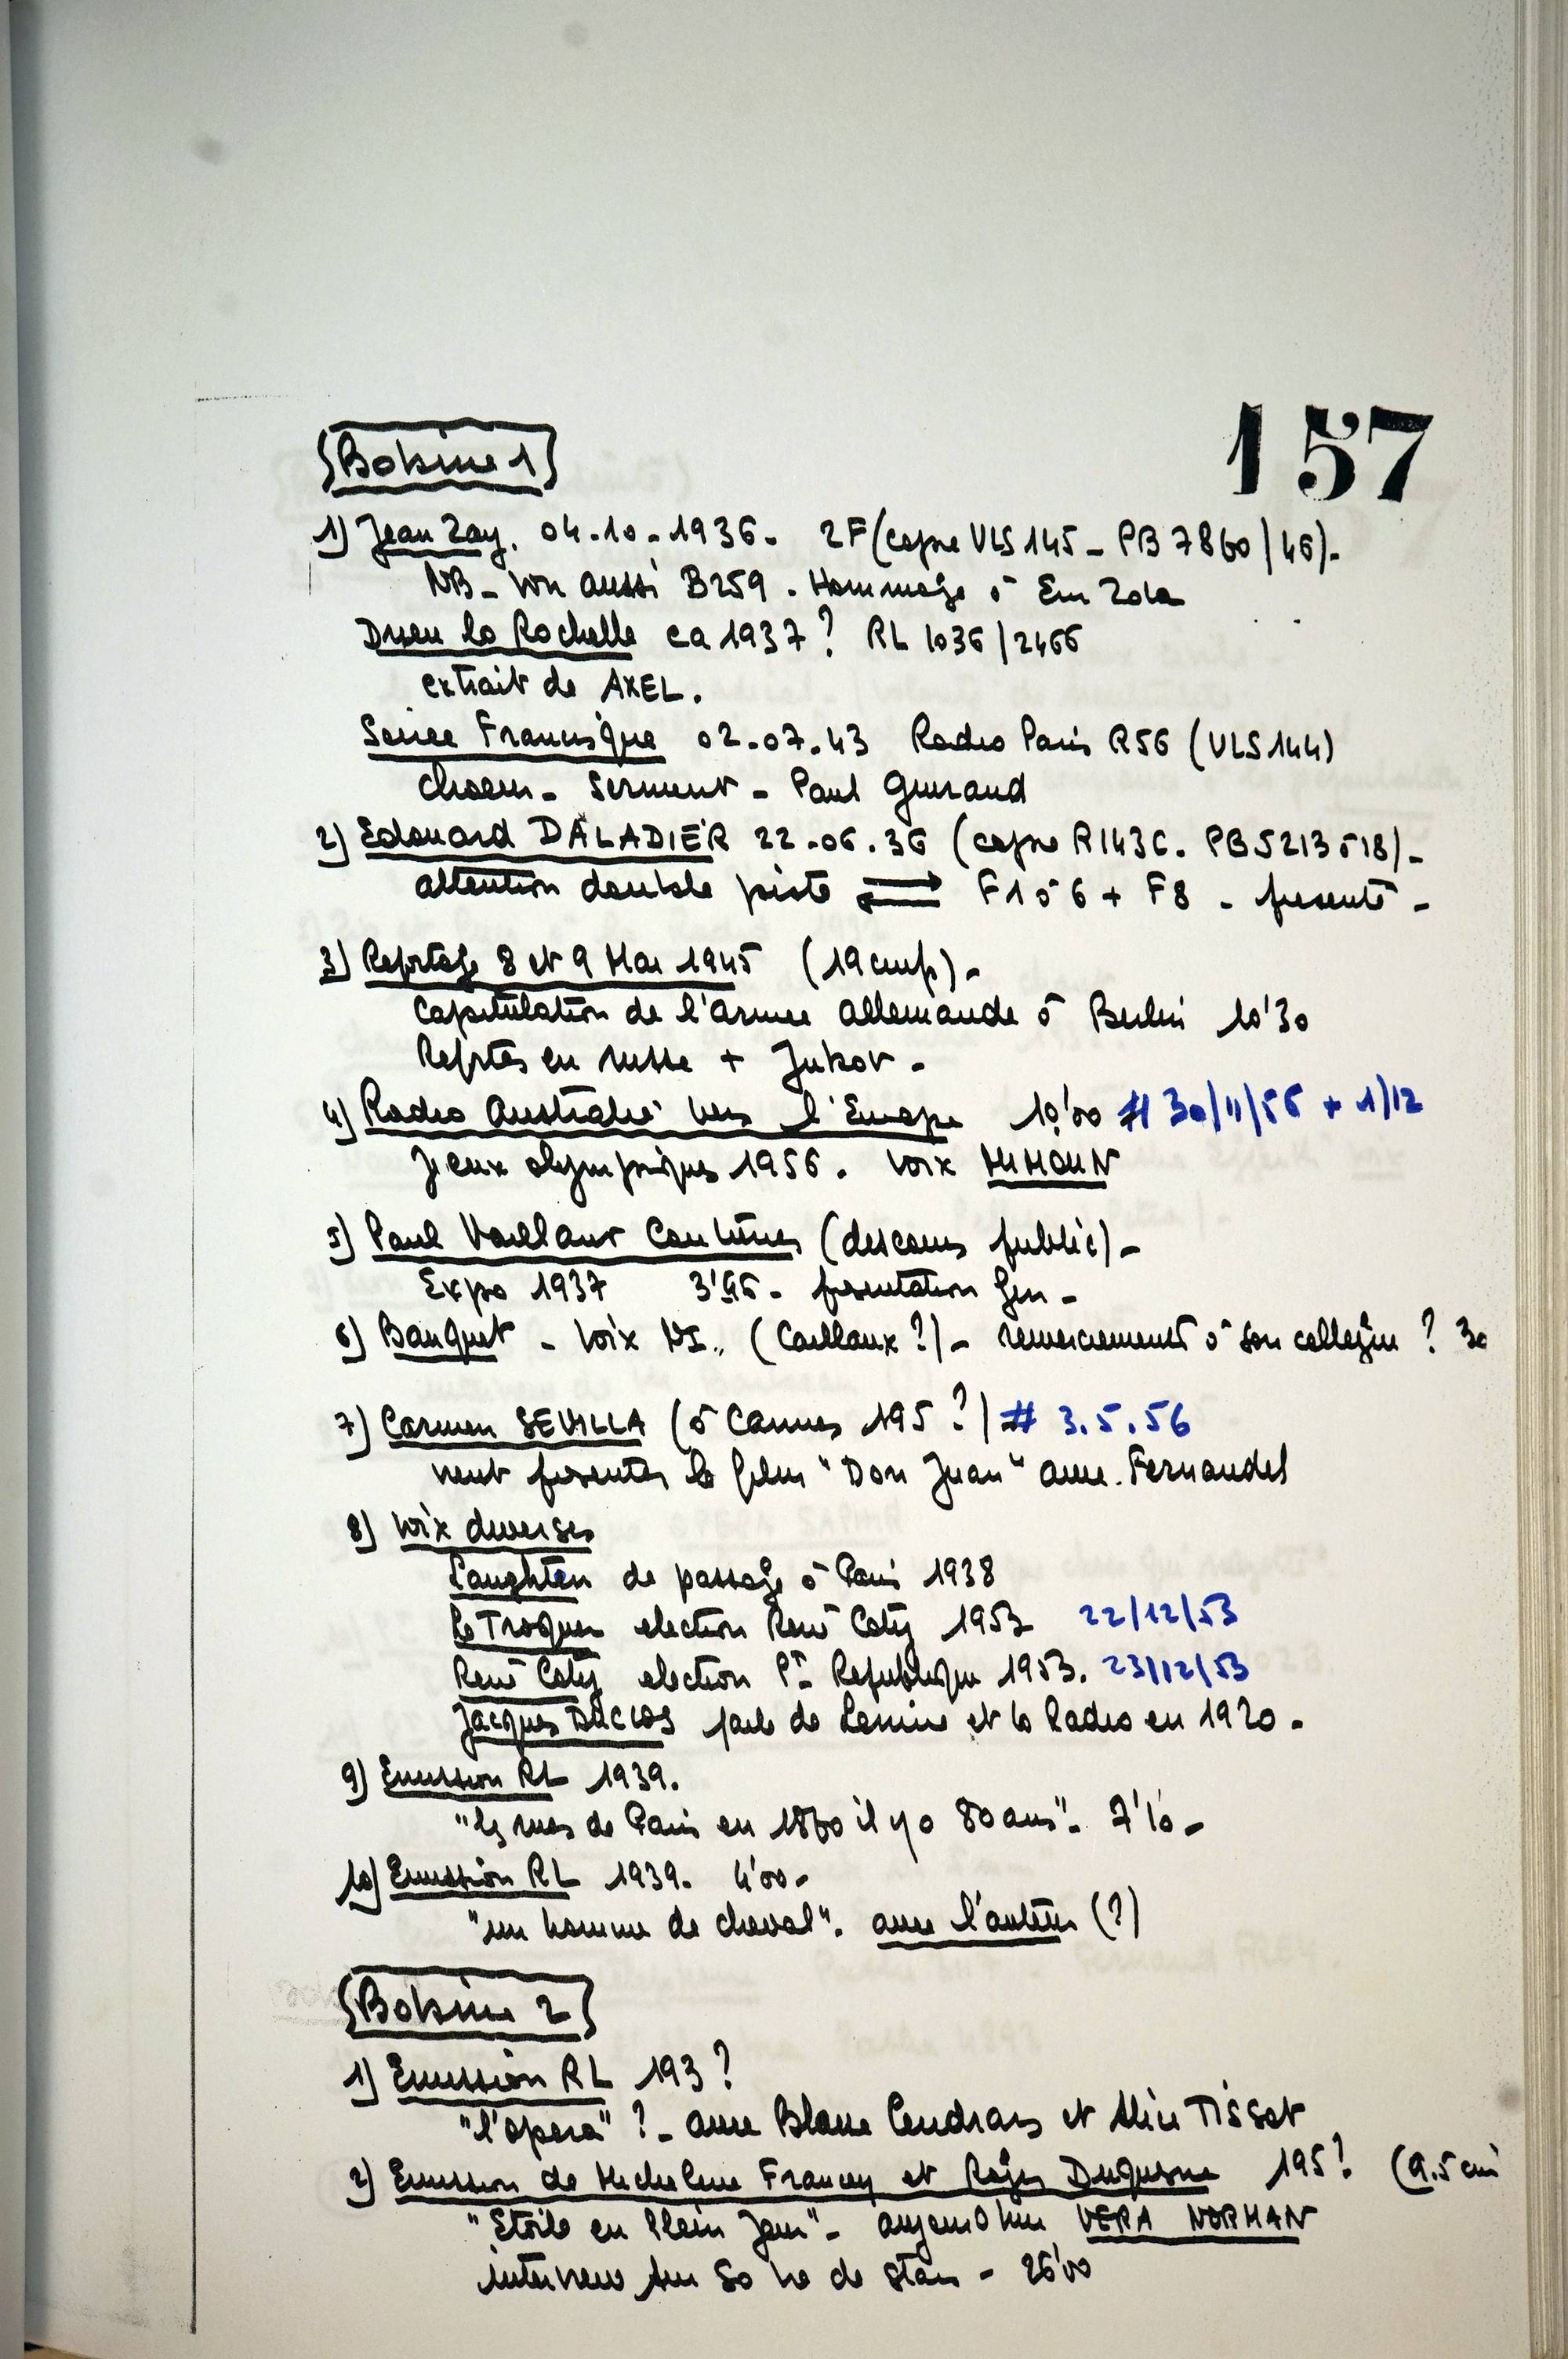 157
Bobine 1
1) Jean Zay. 04.10.1936. 2F (copie VLS 145 - PB 7860/46).
NB - voir aussi B259. Hommage à Em Zola
Drieu la Rochelle ca 1937? RL 1036/2466
extrait de AXEL.
Soirée Francisque 02.07.43 Radio Paris R56 (VLS 144)
choeur - serment - Paul Guiraud
2) Edouard DALADIER 22.06.36 (copie R1436. PB5213 à 18) -
attention double piste ⇄ F1 à 6 + F8 - présenté -
3) Reportage 8 et 9 Mai 1945 (19 cm/s) -
Capitulation de l'armée allemande à Berlin 10'30
Reptes en russe + Jukov -
4) Radio Australie vers l'Europe 10'00 # 30/11/56 + 1/12
Jeux olympiques 1956. voix MIMOUN
5) Paul Vaillant Couturier (discours public) -
Expo 1937 présentation Gen -
6) Banquet - voix NI.. (Caillaux ?) - remerciements à son collègue ? 30
7) Carmen SEVILLA (à Cannes 195?) # 3.5.56
vient présenter le film "Don Juan" avec Fernandel
8) voix diverses
Laughton de passage à Paris 1938
Le Troquer election René Coty 1953 22/12/53
René Coty election Pt Republique 1953. 23/12/53
Jacques DUCLOS parle de Lenine et la Radio en 1920 -
9) Emission RL 1939.
"les rues de Paris en 1860 il y a 80 ans". 7'10 -
10) Emission RL 1939. 4'00 -
"un homme de cheval". avec l'auteur (?)
Bobine 2
1) Emission RL 193?
"l'opera" ? - avec Blaise Cendrars et Alice TISSOT
2) Emission de Micheline Francey et Roger Duquesne 195? (9.5 cm
"Etoile en Plein Jour" - aujourd'hui VERA NORMAN
interview sur sa vie de star - 26'00